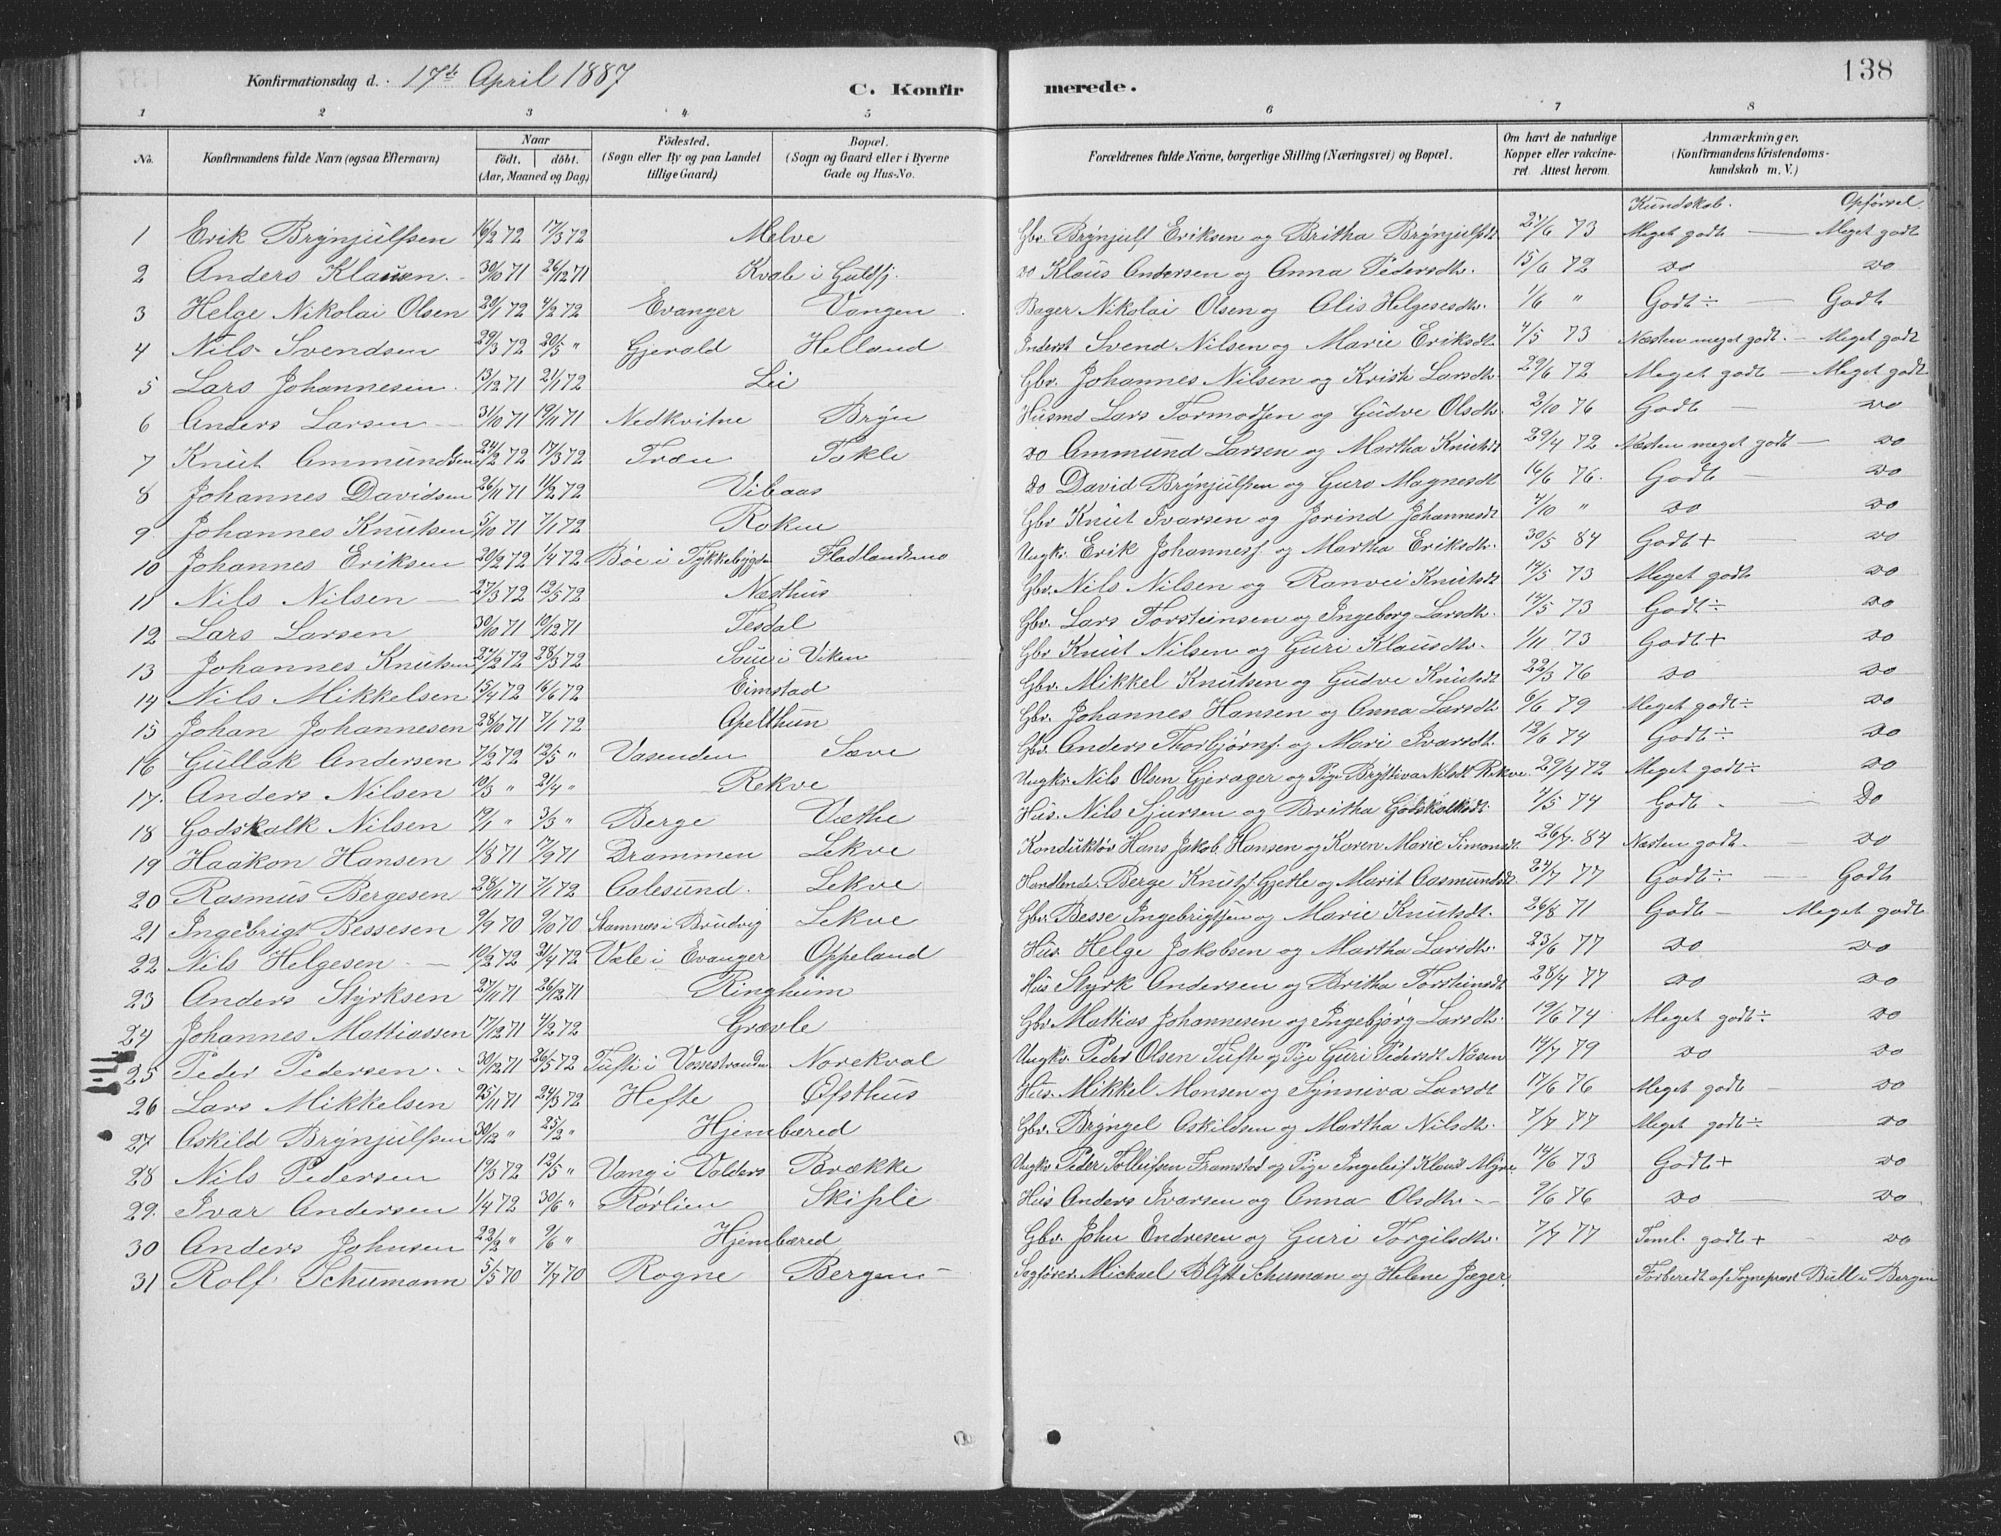 138
Konfirmationsdag d. 17de April 1887
C. Konfirmerede.
1 2 3 4 5 6 7 8
No. Konfirmandens fulde Navn (ogsaa Efternavn) Naar födt. döbt. (Aar, Maaned og Dag) Födested. (Sogn eller By og paa Landet tillige Gaard) Bopæl. (Sogn og Gaard eller i Byerne Gade og Hus-No. Forældrenes fulde Navne, borgerlige Stilling (Næringsvei) og Bopæl. Om havt de naturlige Kopper eller vakcineret. Attest herom. Anmærkninger. (Konfirmandens Kristendomskundskab m. V.)
Kundskab. Opførsel.
1 Erik Brynjulfsen 16/2 72 17/3 72 Melve Gbr. Brynjulf Eriksen og Britha Brynjulfsdt 6 73 Meget godt — Meget godt
2 Anders Klausen 30/10 71 26/12 71 Kvale i Guldfj. do Klaus Andersen og Anna Pedersdtr. 15/6 72 do do
3 Helge Nikolai Olsen 29/1 72 4/2 72 Evanger Vangen Bager Nikolai Olsen og Alis Helgesesdtr. 1/6 " Godt ÷ — Godt
4 Nils Svendsen 29/3 72 20/5 " Gjerald Helland Inderst Svend Nilsen og Marie Eriksdt. 7/5 73 Næsten meget godt. — Meget godt
5 Lars Johannesen 13/12 71 21/1 72 Lii Gbr. Johannes Nilsen og Kristi Larsdtr. 29/6 72 Meget godt — Meget godt
6 Anders Larsen 31/10 71 19/11 71 Nedkvitne Bryn Husmd Lars Tormodsen og Gudve Olsdtr. 2/10 76 Godt do
7 Knut Ammundsen 24/2 72 17/3 72 Traen Tokle do Ammund Larsen og Martha Knutsdt 29/4 72 Næsten meget godt — do
8 Johannes Davidsen 26/11 71 11/2 72 Vibaas do David Brynjulfsen og Guro Magnesdt 16/6 76. Godt — do
9 Johannes Knutsen 5/10 71 7/1 72 Rokne Gbr. Knut Ivarsen og Jorind Johannesdt 7/10 " do do
10 Johannes Eriksen 20/2 72 1/4 72 Bøe i Tykkebygden Fladlandsmo Ungk. Erik Johannesf. og Martha Eriksdtr. 30/5 84 Godt + do
11 Nils Nilsen 27/3 72 12/5 72 Næsthus Gbr. Nils Nilsen og Ranvei Knutsdt 14/5 73 Meget godt do
12 Lars Larsen 30/10 71 10/12 71 Tesdal Gbr. Lars Torsteinsen og Ingeborg Larsdtr. 14/5 73 Godt ÷ do
13 Johannes Knutsen 27/2 72 28/3 72 Saue i Viken Gbr Knut Nilsen og Guri Klausdtr. 1/11 73 Godt + do
14 Nils Mikkelsen 15/4 72 16/6 72 Eimstad Gbr. Mikkel Knutsen og Gudve Knutsdt 22/3 76 do do
15 Johan Johannesen 28/10 71 7/1 72 Apelthun Gbr. Johannes Hansen og Anna Larsdt 6/6 79 Meget godt ÷ do
16 Gullak Andersen 7/2 72 12/5 " Vasenden Sæve Gbr. Anders Thorbjørnf. og Mari Ivarsdt. 12/6 74 Godt ÷ do
17. Anders Nilsen 10/3 " 21/4 " Rekve Ungkr. Nils Olsen Gjerager og Pige Bryttiva Nilsdt Rekve. 29/4 72 Meget godt ÷ do
18 Godskalk Nilsen 19/1 " 3/3 " Berge Væthe Hus. Nils Sjursen og Britha Godskalksdt. 4/5 74 Godt - Do
19 Haakon Hansen 1/8 71 17/9 71 Drammen Lekve Konduktør Hans Jakob Hansen og Karen Marie Simonsdt. 26/7. 84 Næsten godt. do
20 Rasmus Bergesen 28/11 71 7/1 72 Aalesund. Lekve Handlende. Berge Knutf. Gjelle og Marit Aasmundsdt. 24/7 77 Godt ÷ — Godt
21 Ingebrigt Bessesen 9/9 70 9/10 70 Stamnes i Bruvig Lekve Gbr. Besse Ingebrigtsen og Marie Knutsdt. 26/8 71 Godt — Meget godt
22 Nils Helgesen 10/2 72 21/4 72 Vale i Evanger Oppeland Hus. Helge Jakobsen og Martha Larsdtr. 23/6 77 do do
23 Anders Styrksen 27/11 71 26/12 71 Ringheim Hus Styrk Andersen og Britha Torsteinsdt 28/4 77 do do
24 Johannes Mattiassen 17/12 71 4/2 72 Grævle Gbr. Mattias Johannesen og Ingebjørg Larsdtr. 19/6 74. Meget godt ÷ do
25 Peder Pedersen 30/12 71 26/5 72 Tufte i Vossestranden Norekval Ungkr. Peder Olsen Tufte og Pige Guri Pedersdt Næsen 14/7 79 do do
26 Lars Mikkelsen 25/11 71 24/3 72 Hefte Øfsthus Hus. Mikkel Monsen og Synniva Larsdt 17/6 76 Meget godt — do
27 Askild Brynjulfsen 30/12 " 25/2 " Hjembæred Gbr. Bryngel Askildsen og Martha Nilsdtr. 7/7 77 Meget godt ÷ do
28 Nils Pedersen 19/3 72 12/5 " Vang i Valders Brække Ungkr Peder Tolleifsen Framstad og Pige Ingeleif Klaus Myre 14/6 73 Godt + do
29. Ivar Andersen 1/4 72 30/6 " Rørlien Skiple Hus Anders Ivarsen og Anna Olsdtr. 9/6 76 do do
30 Anders Johnsen 22/2 " 9/6 " Hjembæred Gbr. John Endresen og Guri Torgilsdtr. 7/7 77 Teml. godt + do
31 Rolf Schumann 5/5 70 7/7 70 Rogne Bergen Sagfører Michael Schuman og Helene Jæger. Forberedt af Sogneprest Bull i Bergen